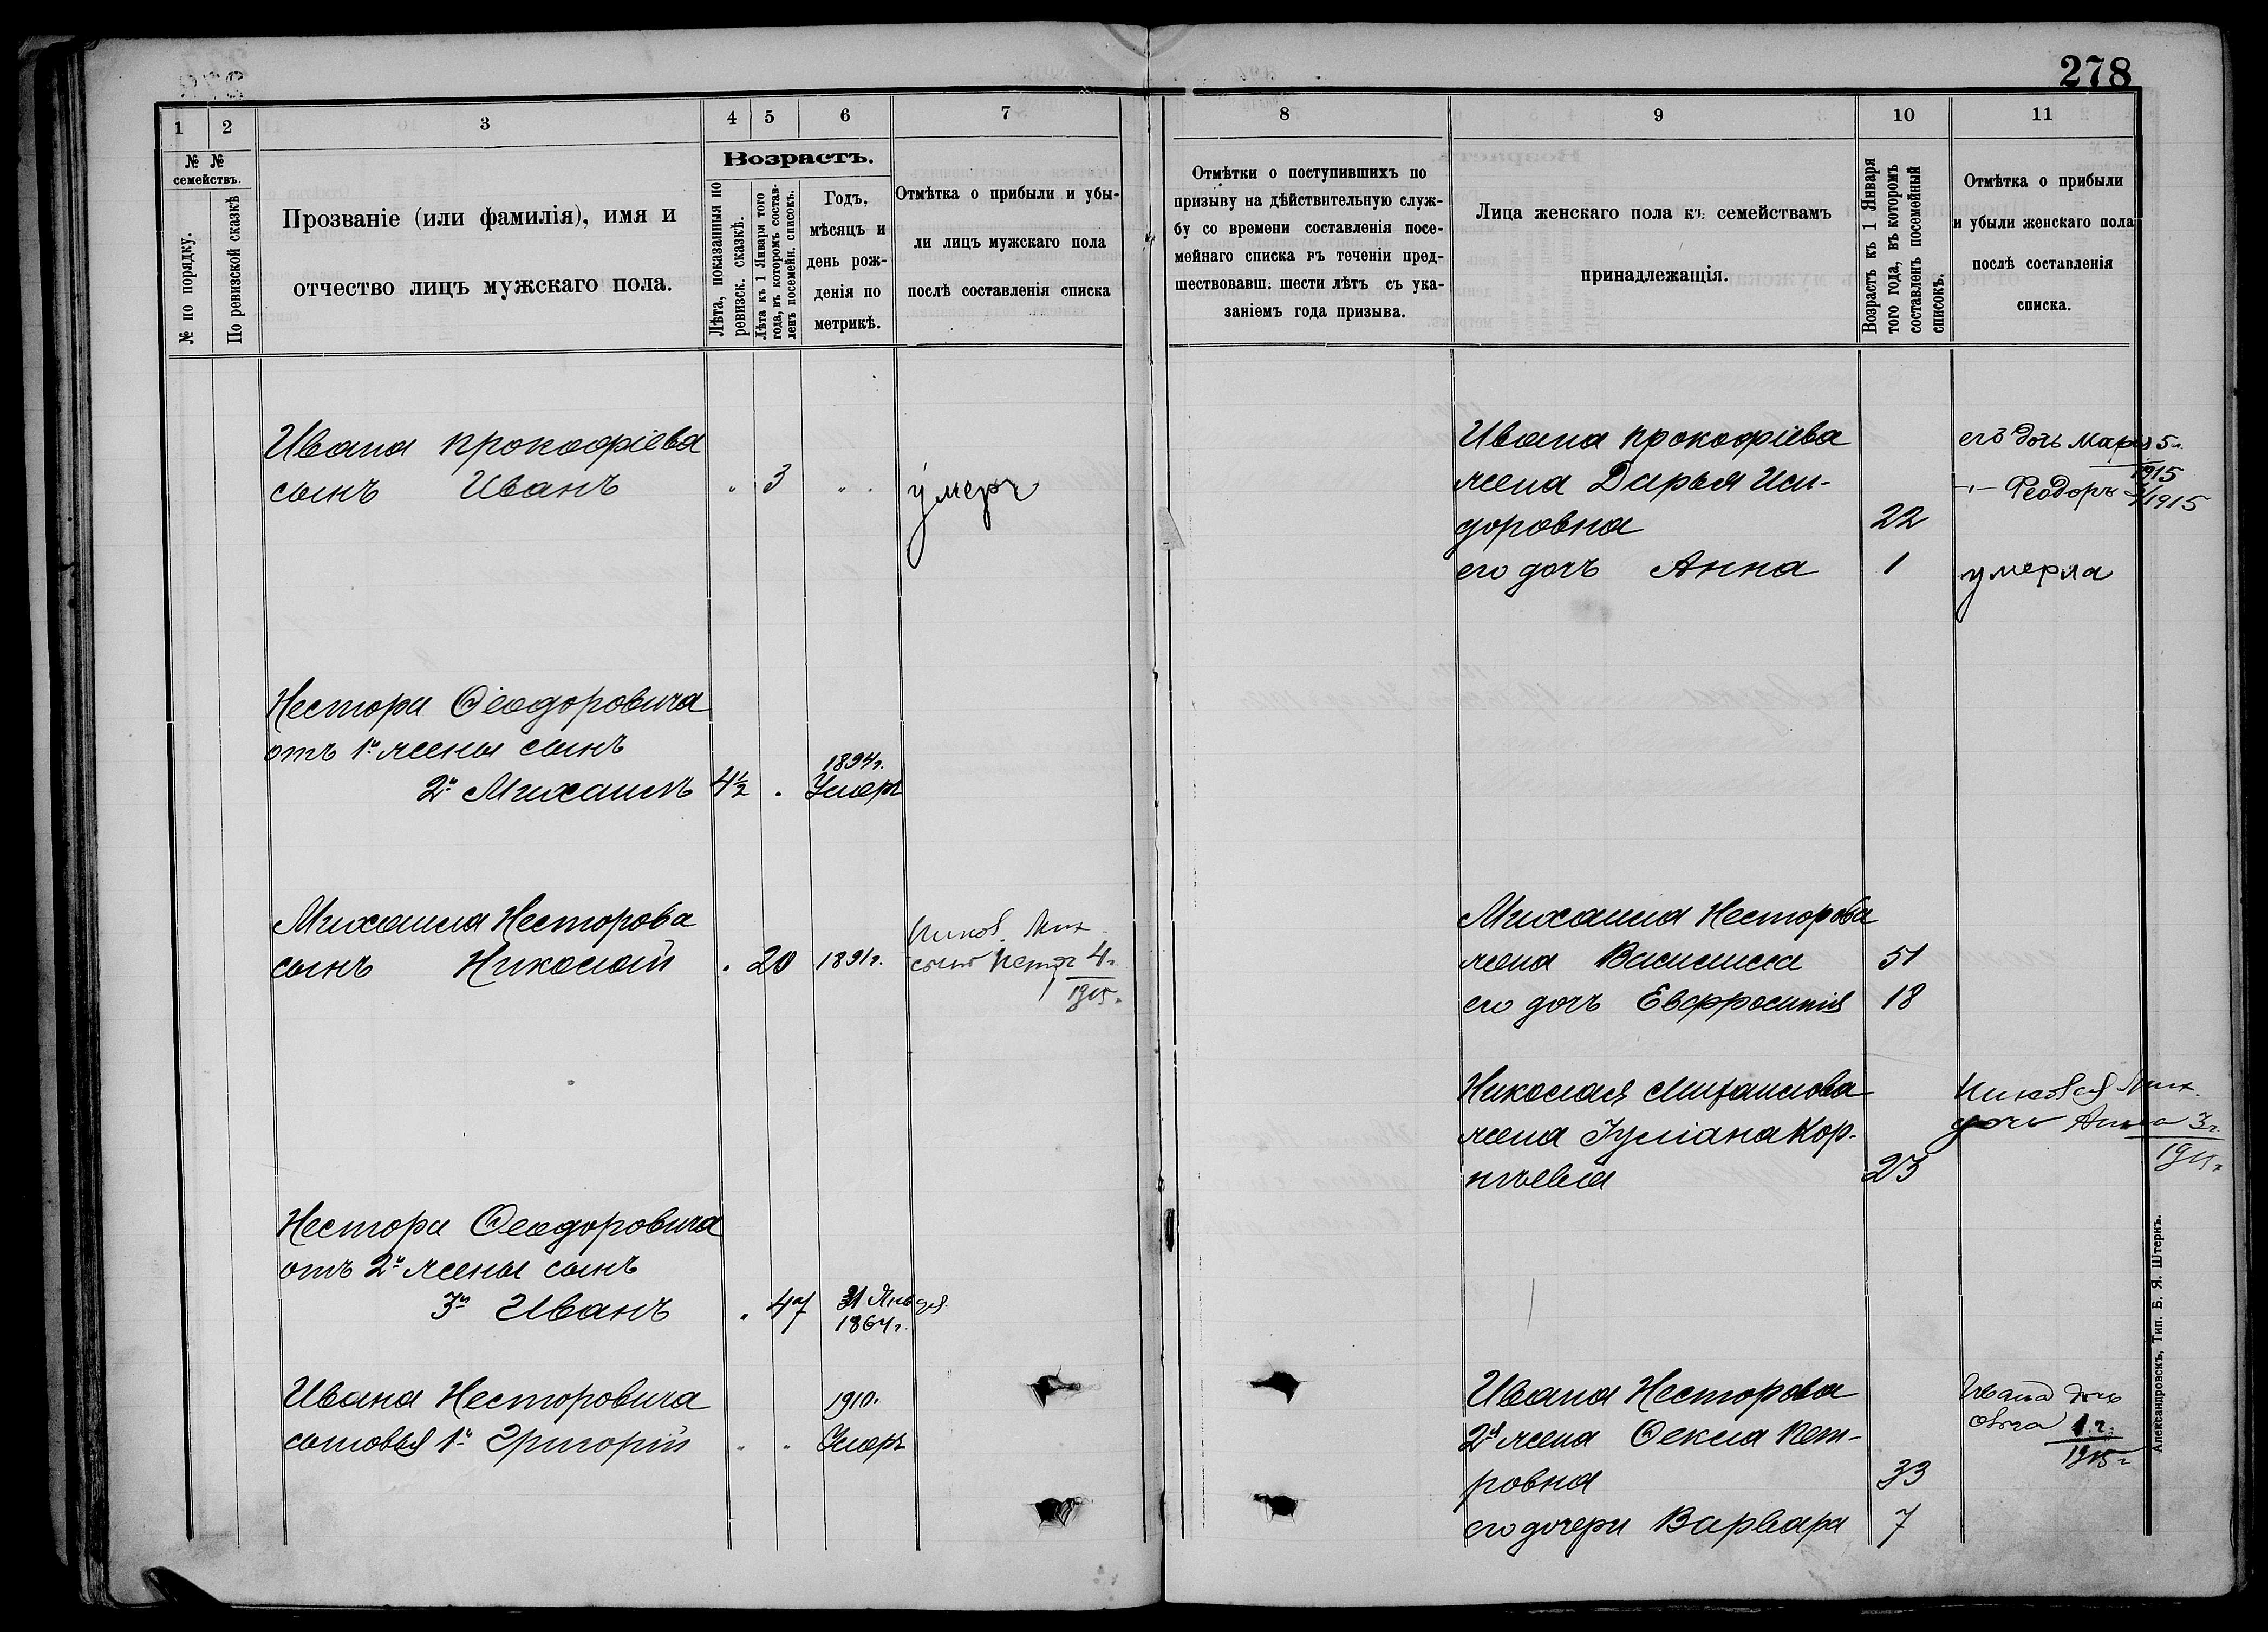 278
1
2
3
4
5
6
7
№ №
семействъ.
№ по порядку.
По ревизской сказкѣ
Прозваніе (или фамилія), имя и
отчество лицъ мужскаго пола.
Возрастъ.
Лѣта, показанныя по
ревизск. сказкѣ.
Лѣта къ 1 Января того
года, въ которомъ состав-
ленъ посемейн. списокъ.
Годъ,
мѣсяцъ и
день рож-
денія по
метрикѣ.
Отмѣтка о прибыли и убы-
ли лицъ мужскаго пола
послѣ составленія списка
Ивана Прокофіева
сынъ Иванъ
3
умеръ
Нестора Ѳеодоровича
отъ 1й жены сынъ
2й Михаилъ
4½
1894г.
Умеръ
Михаила Несторова
сынъ Николай
20
1891г.
Никол. Мих.
сынъ Петръ 4г.
1915г.
Нестора Ѳеодоровича
отъ 2й жены сынъ
3й Иванъ
47
31 Января
1864г.
Ивана Несторовича
сыновья 1й Григорій
1910.
Умеръ
8
9
10
11
Отмѣтки о поступившихъ по
призыву на дѣйствительную служ-
бу со времени составленія посе-
мейнаго списка въ теченіи пред-
шествовавш. шести лѣтъ съ ука-
заніемъ года призыва.
Лица женскаго пола къ семействамъ
принадлежащія.
Возрастъ къ 1 Января
того года, въ которомъ
составленъ посемейный
списокъ.
Отмѣтка о прибыли
и убыли женскаго пола
послѣ составленія
списка.
Ивана Прокофіева
жена Дарья Иси-
доровна
22
его дочь Анна
1
его дочь Марья 5л.
1915
-"- Феодоръ 3/1915
умерла
Михаила Несторова
жена Василиса
51
его дочь Евфросинія
18
Николая Михаилова
жена Іуліана Кор-
нѣевна
23
Николая Мих.
дочь Анна 3г.
1915г.
Ивана Несторова
2я жена Ѳекла Пет-
ровна
33
его дочери Варвара
7
Ивана дочь
Ольга 1 г.
1915г
Александровскъ, Тип. Б. Я. Штернъ.